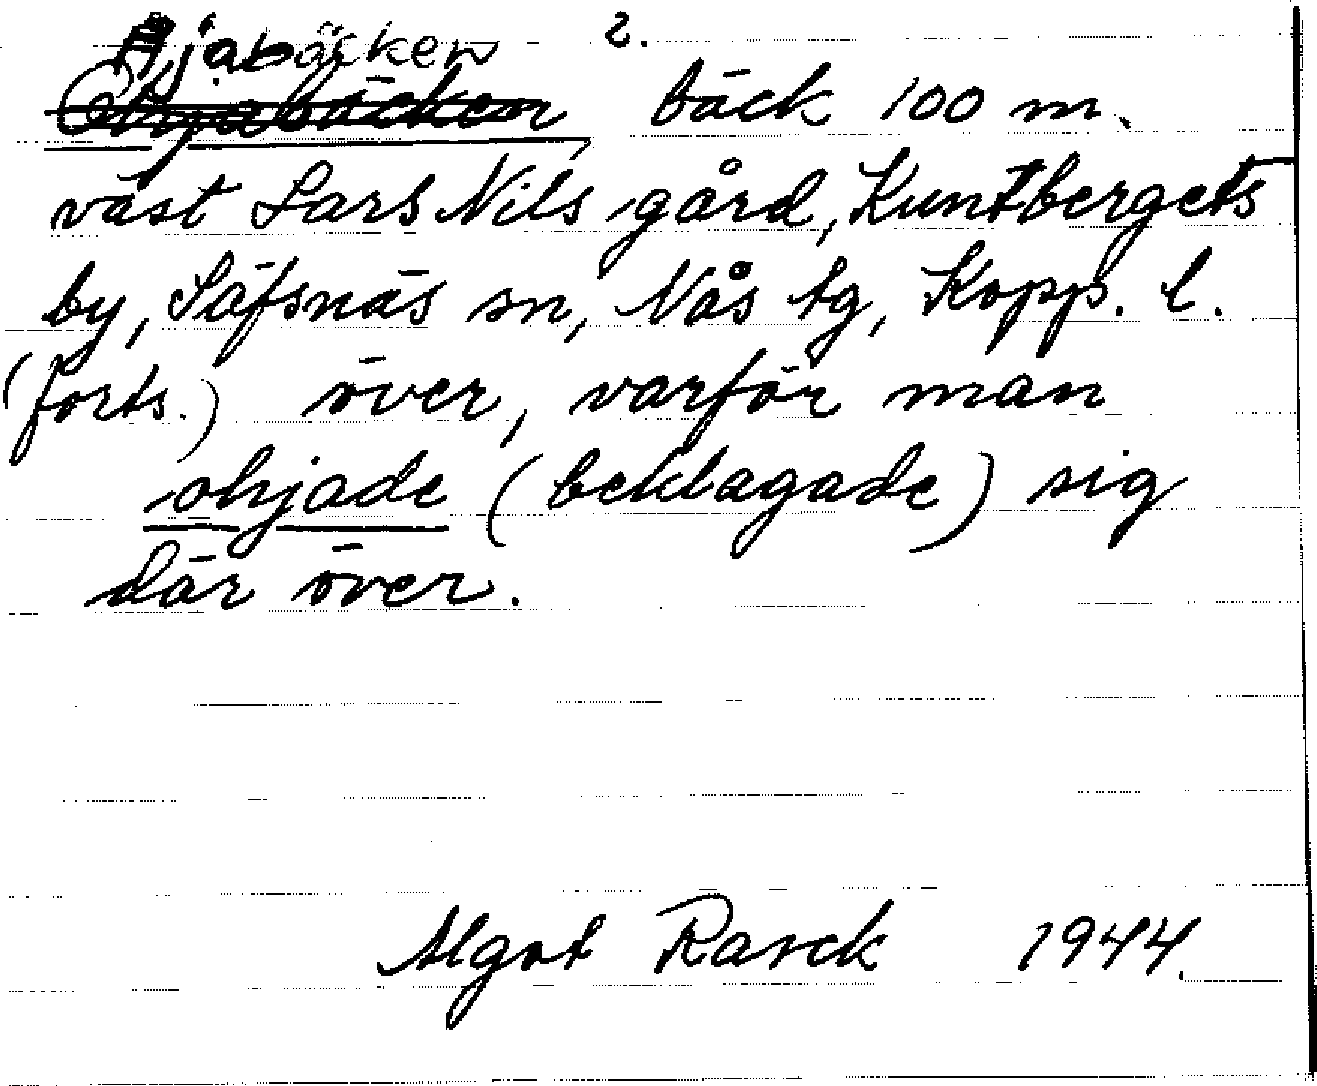 Ajabäcken 2.
Ohjabäcken bäck 100 m.
väst Lars Nils gård, Kuntbergets
by, Säfsnäs sn, Nås tg, Kopp. l.
(forts.) över, varför man
ohjade (beklagade) sig
där över.
Algot Rarck 1944.